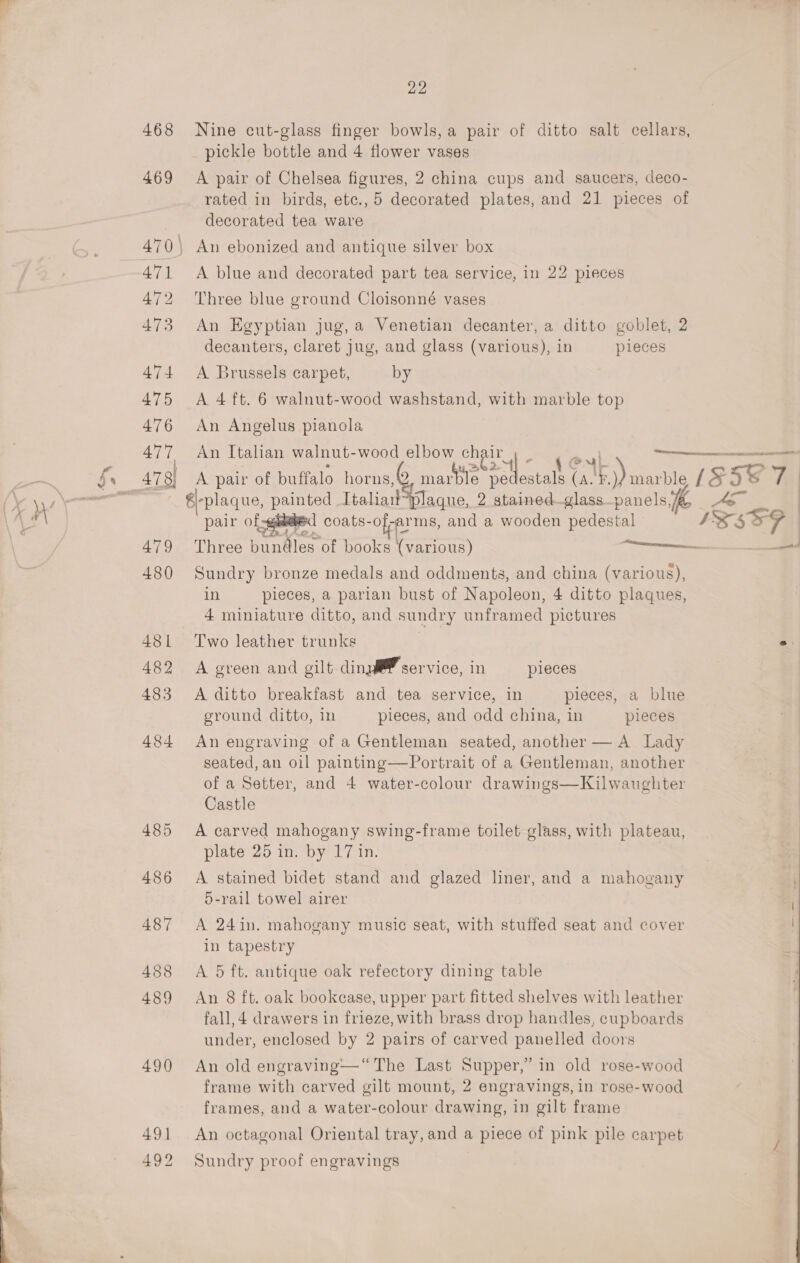 22
468 Nine cut-glass finger bowls, a pair of ditto salt cellars,
pickle bottle and 4 flower vases
469 A pair of Chelsea figures, 2 china cups and saucers, deco-
rated in birds, etc., 5 decorated plates, and 21 pieces of
decorated tea ware
470 An ebonized and antique silver box
471 A blue and decorated part tea service, in 22 pieces
472 Three blue ground Cloisonné vases
473 An Egyptian jug, a Venetian decanter, a ditto goblet, 2
decanters, claret jug, and glass (various), in pieces
474 A Brussels carpet, by
475 A 4 ft. 6 walnut-wood washstand, with marble top
476 An Angelus pianola
477 An Italian walnut-wood elbow chair
478 A pair of buffalo horns, 2 marble pedestals (a. F.) marble
plaque, painted Italian plaque, 2 stained glass panels,
pair of coats-of-arms, and a wooden pedestal
479 Three bundles of books (various)
480 Sundry bronze medals and oddments, and china (various),
in pieces, a parian bust of Napoleon, 4 ditto plaques,
4 miniature ditto, and sundry unframed pictures
481 Two leather trunks
482 A green and gilt dinner service, in pieces
483 A ditto breakfast and tea service, in pieces, a blue
ground ditto, in pieces, and odd china, in pieces
484 An engraving of a Gentleman seated, another — A Lady
seated, an oil painting—Portrait of a Gentleman, another
of a Setter, and 4 water-colour drawings—Kilwaughter
Castle
485 A carved mahogany swing-frame toilet glass, with plateau,
plate 25 in. by 17 in.
486 A stained bidet stand and glazed liner, and a mahogany
5-rail towel airer
487 A 24 in. mahogany music seat, with stuffed seat and cover
in tapestry
488 A 5 ft. antique oak refectory dining table
489 An 8 ft. oak bookcase, upper part fitted shelves with leather
fall, 4 drawers in frieze, with brass drop handles, cupboards
under, enclosed by 2 pairs of carved panelled doors
490 An old engraving—“The Last Supper,” in old rose-wood
frame with carved gilt mount, 2 engravings, in rose-wood
frames, and a water-colour drawing, in gilt frame
491 An octagonal Oriental tray, and a piece of pink pile carpet
492 Sundry proof engravings